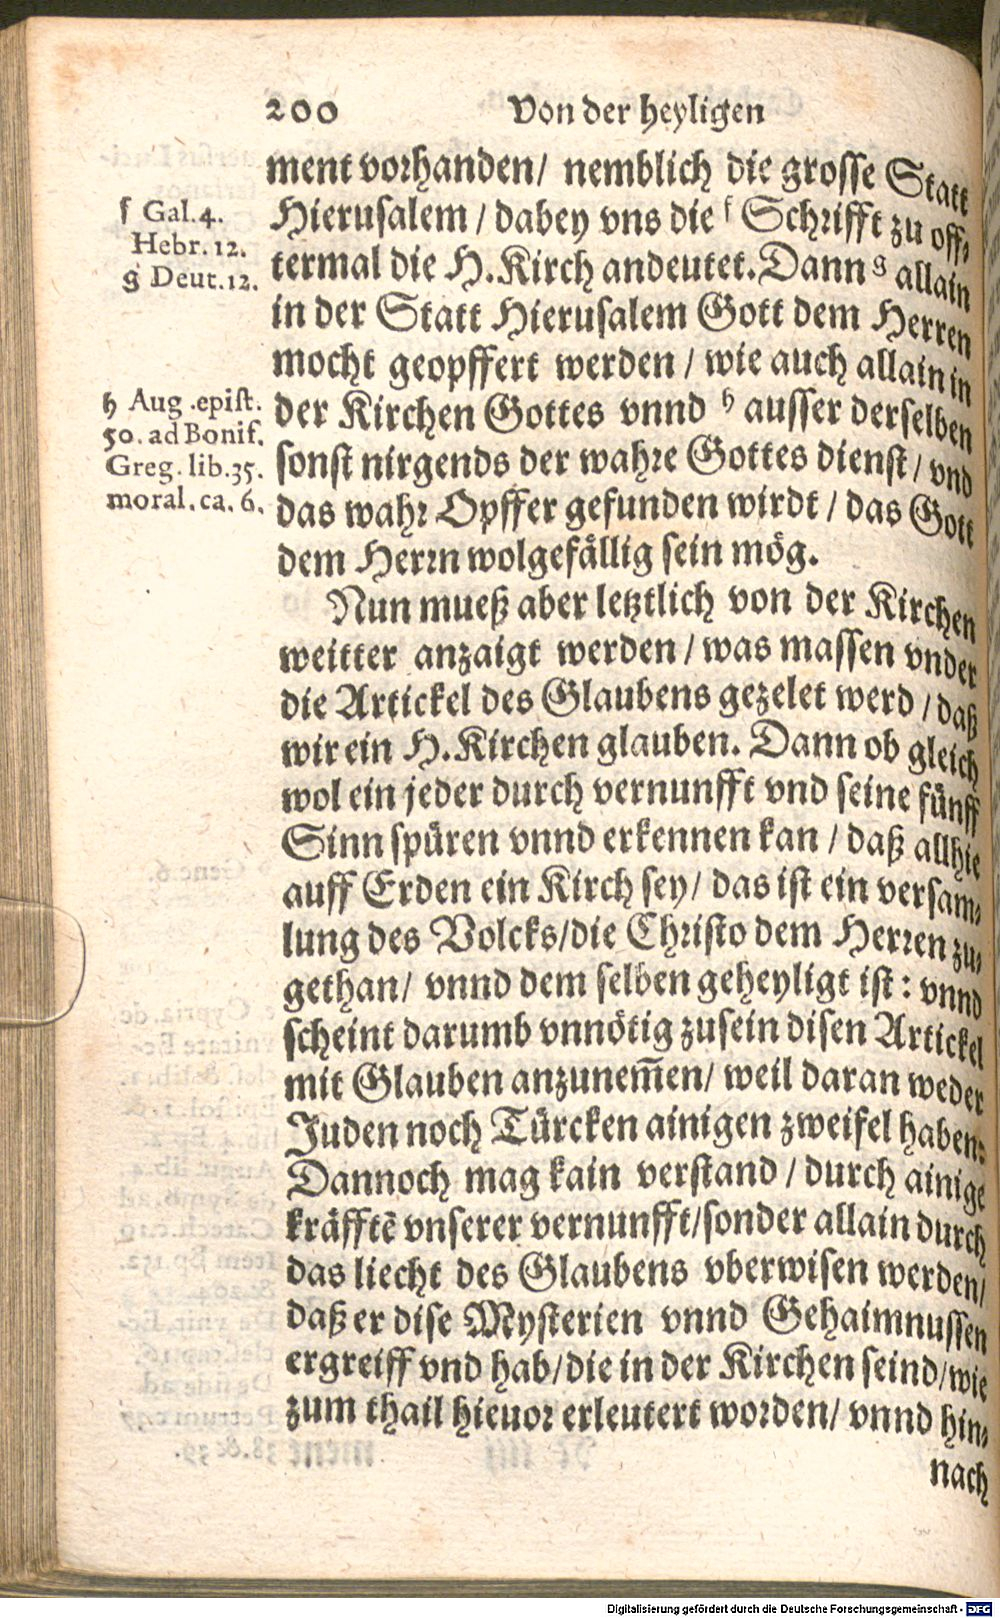 200 Von der heyligen
ment vorhanden/ nemblich die grosse Statt
Hierusalem / dabey vns die f Schrifft zu off⸗
termal die H. Kirch andeutet. Dann g allain
in der Statt Hierusalem Gott dem Herren
mocht geopffert werden / wie auch allain in
der Kirchen Gottes vnnd h ausser derselben
sonst nirgends der wahre Gottes dienst / vnd
das wahr Opffer gefunden wirdt / das Gott
dem Herrn wolgefällig sein mög.
Nun mueß aber letztlich von der Kirchen
weitter anzaigt werden / was massen vnder
die Artickel des Glaubens gezelet werd / daß
wir ein H. Kirchen glauben. Dann ob gleich
wol ein jeder durch vernunfft vnd seine fünff
Sinn spüren vnnd erkennen kan / daß allhie
auff Erden ein Kirch sey / das ist ein versam⸗
lung des Volcks/die Christo dem Herren zu⸗
gethan/ vnnd dem selben geheyligt ist: vnnd
scheint darumb vnnötig zusein disen Artickel
mit Glauben anzunem̃en/ weil daran weder
Juden noch Türcken ainigen zweifel haben:
Dannoch mag kain verstand / durch ainige
kräfftẽ vnserer vernunfft/sonder allain durch
das liecht des Glaubens vberwisen werden/
daß er dise Mysterien vnnd Gehaimnussen
ergreiff vnd hab/die in der Kirchen seind/wie
zum thail hieuor erleutert worden/ vnnd hin⸗
nach
f Gal. 4.
Hebr. 12.
g Deut. 12.
h Aug. epist.
50. ad Bonif.
Greg. lib. 35.
moral. ca. 6.
Digitalisierung gefördert durch die Deutsche Forschungsgemeinschaft - DFG